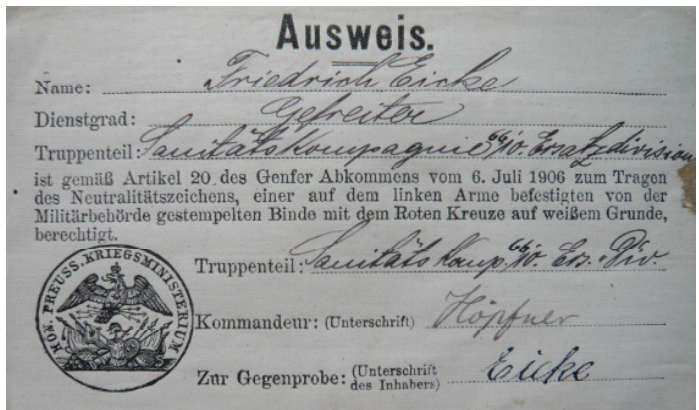 Ausweis.
Name: Friedrich Eicke
Dienstgrad: Gefreiter
Truppenteil: Sanitätskompagnie 66/10. Ersatzdivision
ist gemäß Artikel 20 des Genfer Abkommens vom 6. Juli 1906 zum Tragen
des Neutralitätszeichens, einer auf dem linken Arme befestigten von der
Militärbehörde gestempelten Binde mit dem Roten Kreuze auf weißem Grunde,
berechtigt.
KÖN. PREUSS. KRIEGSMINISTERIUM
Truppenteil: Sanitäts Komp. 66/10. Ers. Div.
Kommandeur: (Unterschrift) Höpfner
Zur Gegenprobe: (Unterschrift des Inhabers) Eicke